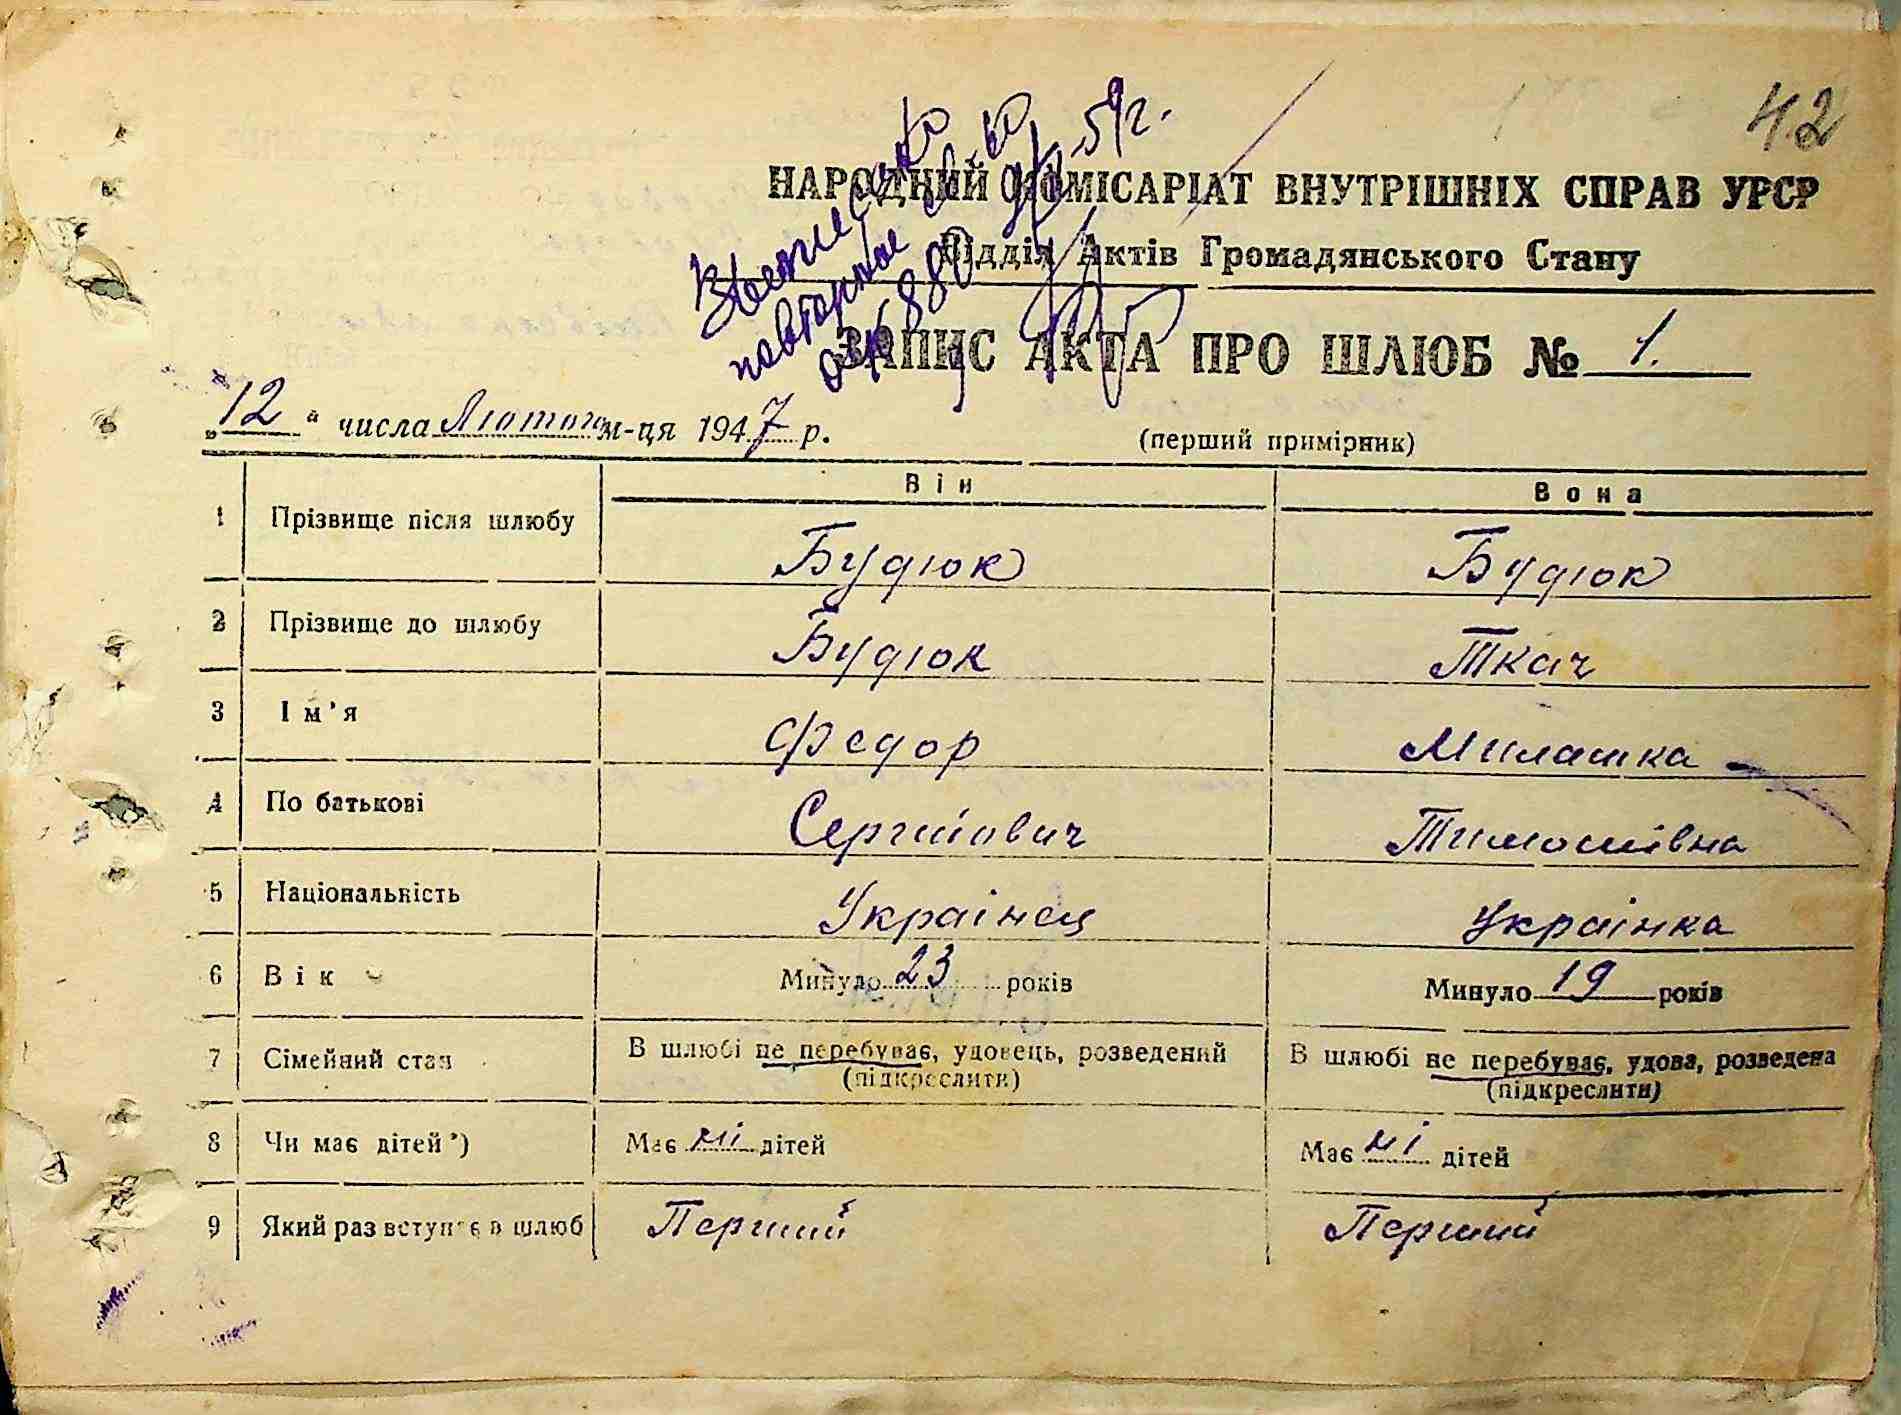 42
НАРОДНИЙ КОМІСАРІАТ ВНУТРІШНІХ СПРАВ УРСР
Відділ Актів Громадянського Стану
повторное
59г.
ЗАПИС АКТА ПРО ШЛЮБ № 1.
„12" числа Лютого м-ця 1947 р.
(перший примірник)
Він Вона
1 Прізвище після шлюбу Будюк Будюк
2 Прізвище до шлюбу Будюк Ткач
3 Ім'я Федор Милашка
4 По батькові Сергійович Тимошівна
5 Національність Украінец Украінка
6 Вік Минуло 23 років Минуло 19 років
7 Сімейний стан В шлюбі не перебуває, удовець, розведений В шлюбі не перебуває, удова, розведена
(підкреслити) (підкреслити)
8 Чи має дітей*) Має ні дітей Має ні дітей
9 Який раз вступає в шлюб Перший Перший